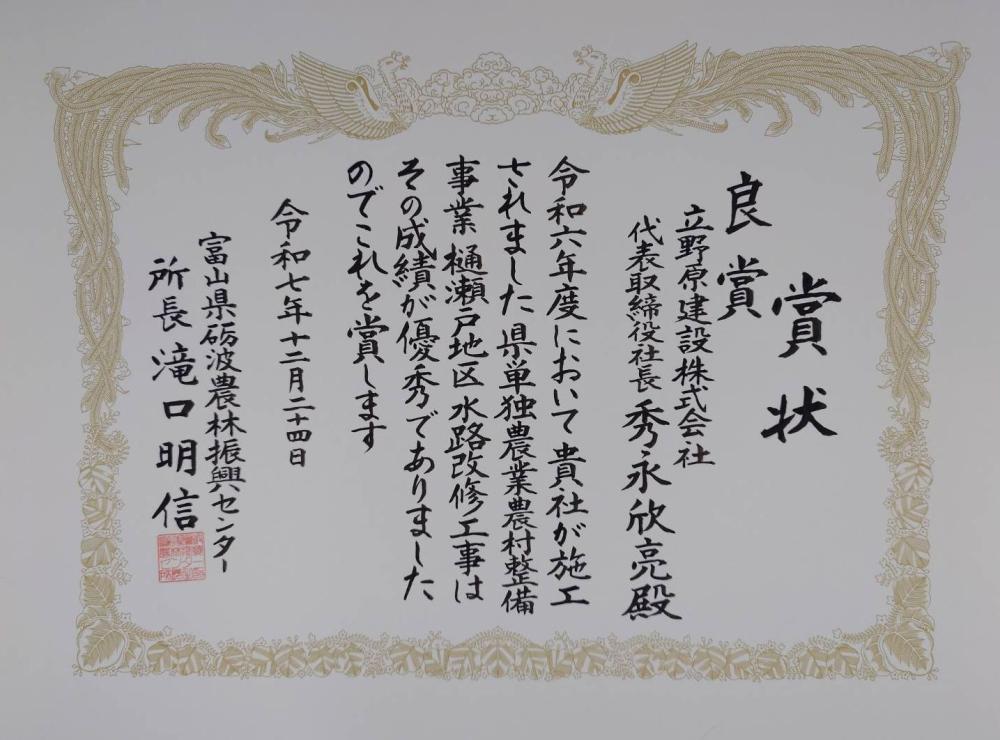 賞状
良賞
立野原建設株式会社
代表取締役社長 秀永欣亮殿
令和六年度において貴社が施工
されました県単独農業農村整備
事業 樋瀬戸地区 水路改修工事は
その成績が優秀でありました
のでこれを賞します
令和七年十二月二十四日
富山県砺波農林振興センター
所長 滝口明信